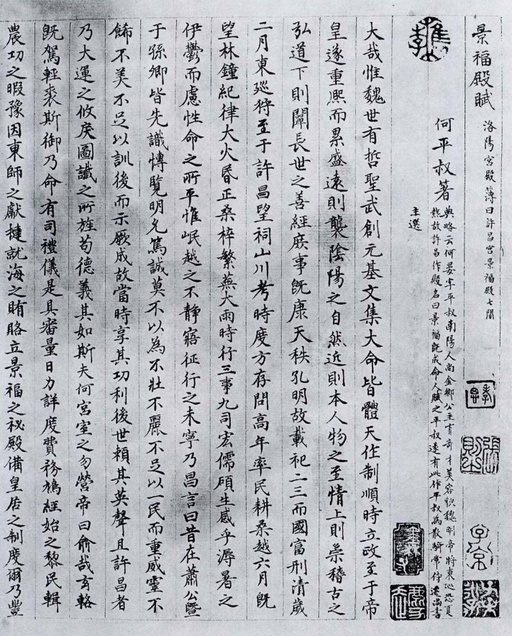 景福殿賦 洛陽宮殿簿曰許昌宮景福殿七間
何平叔著 典略云何晏字平叔南陽人尚金鄉公主有奇才美容貌魏明帝將東巡恐夏
熱故許昌作殿名曰景福既成命人賦之平叔遂有此作平叔為散騎常侍遷尚書
主選
大哉惟魏世有哲聖武創元基文集大命皆體天作制順時立政至于帝
皇遂重熙而累盛遠則襲陰陽之自然近則本人物之至情上則崇稽古之
弘道下則闡長世之善經庶事既康天秩孔明故載祀二三而國富刑清歲
二月東巡狩至于許昌望祠山川考時度方存問高年率民耕桑越六月既
望林鐘紀律大火昏正桑梓繁蕪大雨時行三事九司宏儒碩生感乎溽暑之
伊鬱而慮性命之所平惟岷越之不靜寤征行之未寧乃昌言曰昔在蕭公暨
于孫卿皆先識博覽明允篤誠莫不以為不壯不麗不足以一民而重威靈不
飾不美不足以訓後而示厥成故當時享其功利後世賴其英聲且許昌者
乃大運之攸戾圖讖之所旌苟德義其如斯夫何宮室之勿營帝曰俞哉玄輅
既駕輕裘斯御乃命有司禮儀是具審量日力詳度費務鳩經始之黎民輯
農功之暇豫因東師之獻捷就海之賄賂立景福之祕殿備皇居之制度爾乃豐